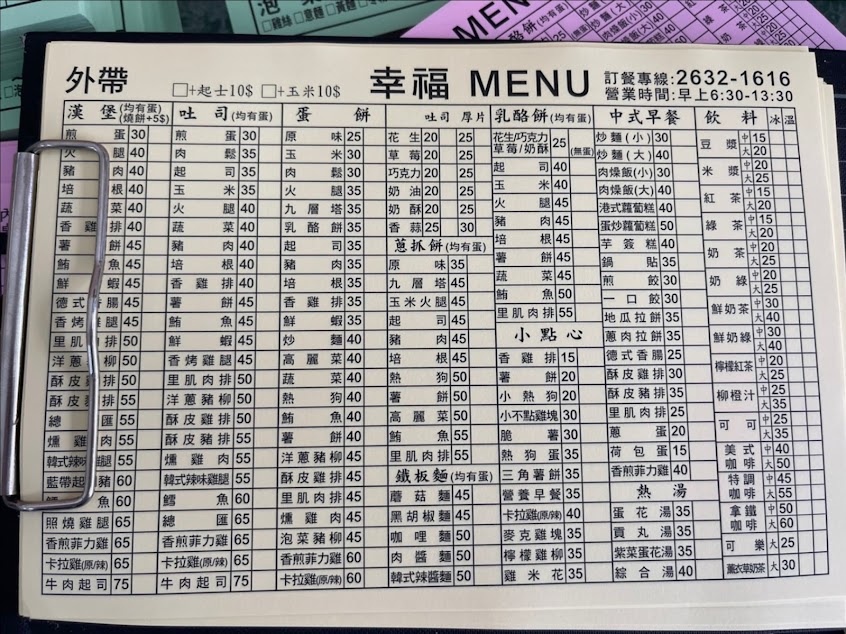 外帶 □+起士10$ □+玉米10$ 幸福 MENU 訂餐專線:2632-1616
營業時間:早上6:30-13:30
漢堡(均有蛋)(燒餅+5$)
煎蛋 30
火腿 40
豬肉 40
培根 40
蔬菜 40
香雞排 40
薯餅 45
鮪魚 45
鮮蝦 45
德式香腸 45
香烤雞腿 45
里肌肉排 50
洋蔥豬柳 50
酥皮雞排 50
酥皮豬排 55
總匯 55
燻雞肉 55
韓式辣味雞腿 55
藍帶起司豬 60
鱈魚 60
照燒雞腿 65
香煎菲力雞 65
卡拉雞(原/辣) 65
牛肉起司 75
吐司(均有蛋)
煎蛋 30
肉鬆 35
起司 35
玉米 35
火腿 40
蔬菜 40
豬肉 40
培根 40
香雞排 40
薯餅 45
鮪魚 45
鮮蝦 45
香烤雞腿 45
里肌肉排 50
洋蔥豬柳 50
酥皮雞排 50
酥皮豬排 55
燻雞肉 55
韓式辣味雞腿 55
鱈魚 60
總匯 65
香煎菲力雞 65
卡拉雞(原/辣) 65
牛肉起司 75
蛋餅
原味 25
玉米 30
肉鬆 30
火腿 35
九層塔 35
乳酪餅 35
起司 35
豬肉 35
培根 35
香雞排 35
鮮蝦 35
炒麵 40
高麗菜 40
蔬菜 40
熱狗 40
鮪魚 40
薯餅 40
洋蔥豬柳 45
酥皮雞排 45
里肌肉排 45
燻雞肉 45
泡菜豬柳 45
香煎菲力雞 60
卡拉雞(原/辣) 60
吐司 厚片
花生 20 25
草莓 20 25
巧克力 20 25
奶油 20 25
奶酥 20 25
香蒜 25 30
蔥抓餅(均有蛋)
原味 35
九層塔 45
玉米火腿 45
起司 45
豬肉 45
培根 45
熱狗 50
蔬菜 50
高麗菜 50
鮪魚 55
里肌肉排 55
鐵板麵(均有蛋)
蘑菇麵 45
黑胡椒麵 45
咖哩麵 50
肉醬麵 50
韓式辣醬麵 50
乳酪餅(均有蛋)
花生/巧克力
草莓/奶酥 25 (無蛋)
起司 40
玉米 40
火腿 45
豬肉 45
培根 45
薯餅 45
蔬菜 45
鮪魚 50
里肌肉排 55
小點心
香雞排 15
薯餅 20
小熱狗 20
小不點雞塊 30
脆薯 30
熱狗蛋 35
三角薯餅 35
營養早餐 35
卡拉雞(原/辣) 40
麥克雞塊 35
檸檬雞柳 35
雞米花 35
中式早餐
炒麵(小) 30
炒麵(大) 40
肉燥飯(小) 30
肉燥飯(大) 40
港式蘿蔔糕 40
蛋炒蘿蔔糕 50
芋簽糕 40
鍋貼 35
煎餃 30
一口餃 30
地瓜拉餅 35
蔥肉拉餅 35
德式香腸 25
酥皮雞排 30
酥皮豬排 35
里肌肉排 25
蔥蛋 20
荷包蛋 15
香煎菲力雞 40
熱湯
蛋花湯 35
貢丸湯 35
紫菜蛋花湯 35
綜合湯 40
飲料 冰 溫
豆漿 中15 大20
米漿 中20 大25
紅茶 中15 大20
綠茶 中15 大20
奶茶 中20 大25
奶綠 中20 大25
鮮奶茶 中30 大40
鮮奶綠 中30 大40
檸檬紅茶 中20 大25
柳橙汁 中25 大35
可可 中25 大35
美式咖啡 中40 大50
特調咖啡 中45 大55
拿鐵咖啡 中50 大60
可樂 大25
薰衣草奶茶 大30